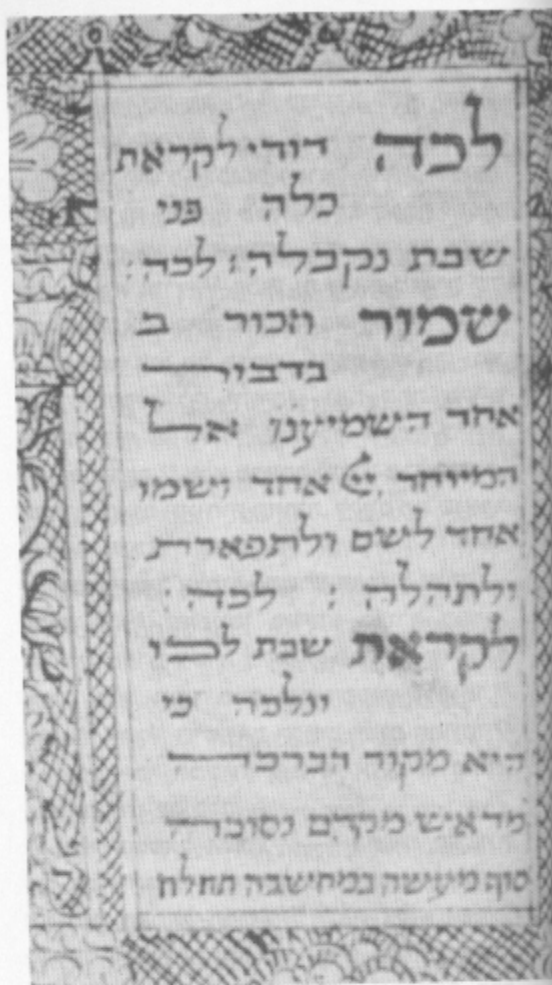 לכה דודי לקראת
כלה פני
שבת נקבלה : לכה :
שמור וזכור ב
בדבור
אחד השמיענו אל
המיוחד יי אחד ושמו
אחד לשם ולתפארת
ולתהלה : לכה :
לקראת שבת לכו
ונלכה כי
היא מקור הברכה
מראש מקדם נסוכה
סוף מעשה במחשבה תחלה